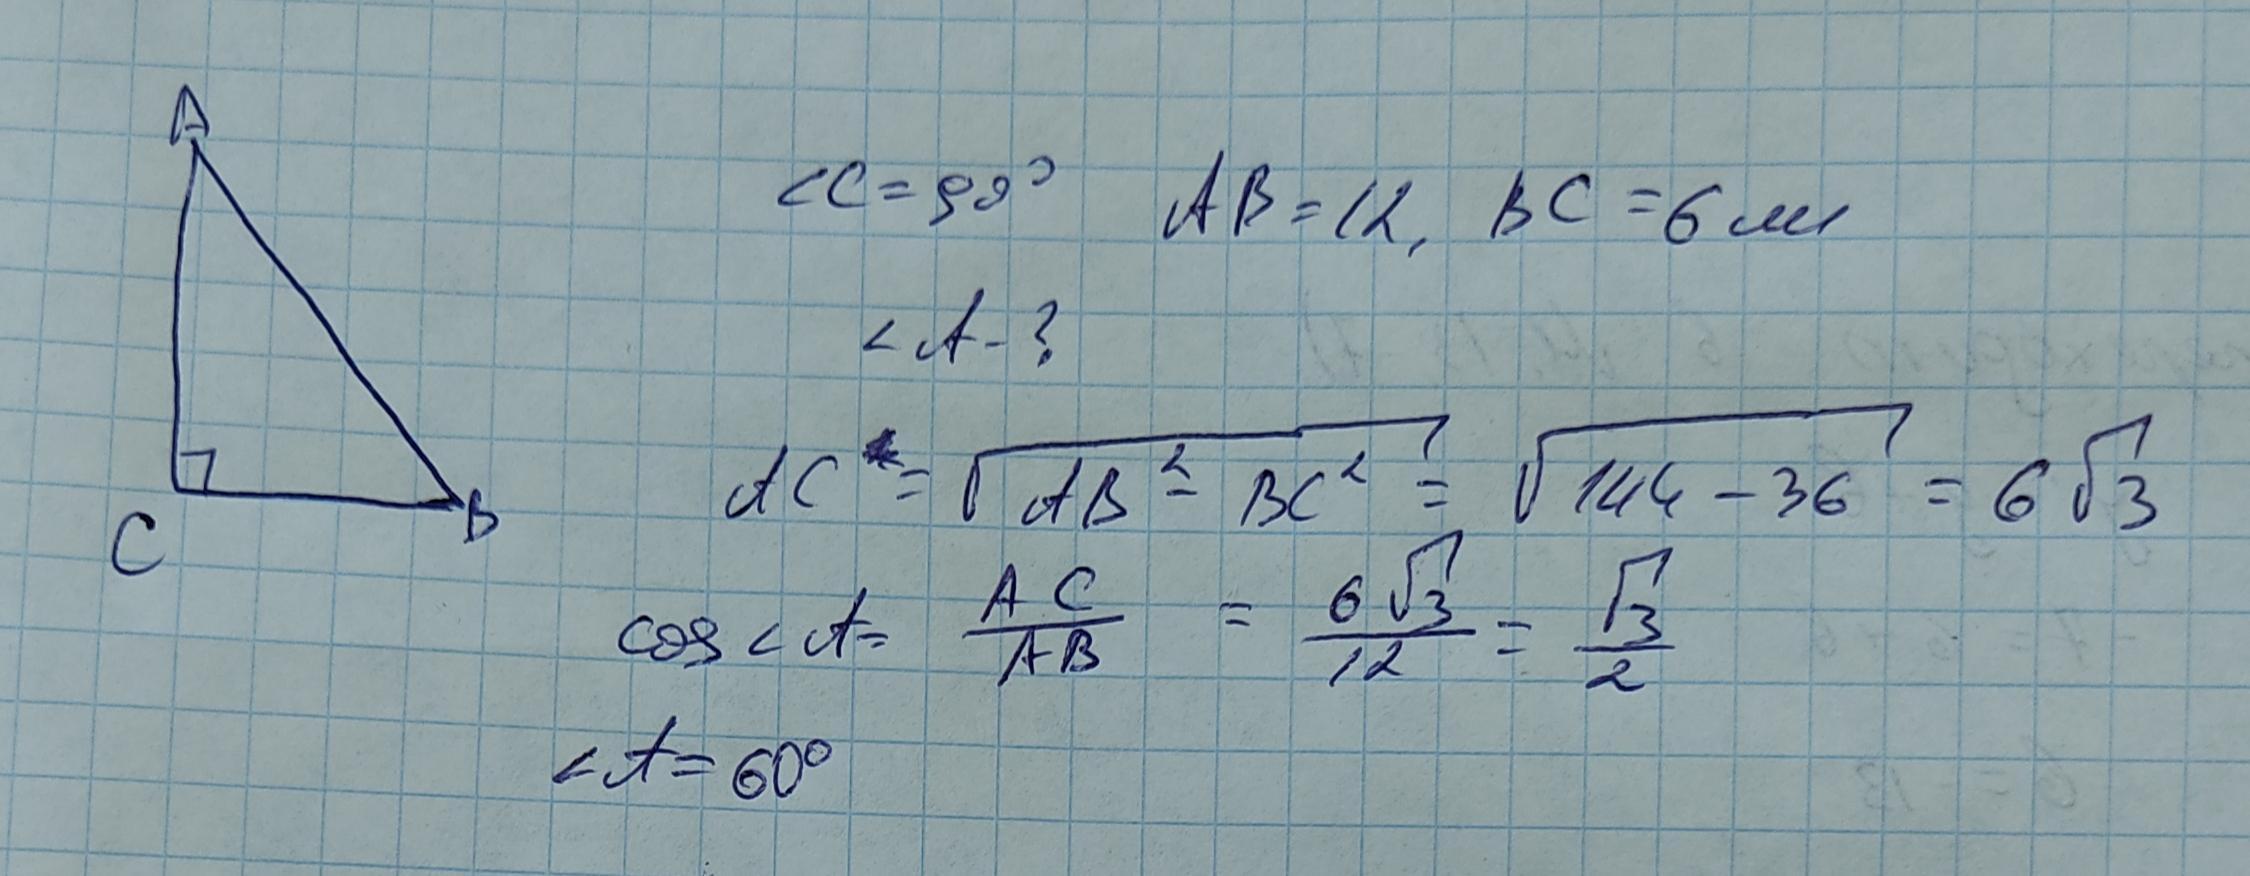 A
C
B
<C = 90° AB = 12, BC = 6 см
<A - ?
AC = √AB² - BC² = √144 - 36 = 6√3
cos <A = AC/AB = 6√3/12 = √3/2
<A = 60°